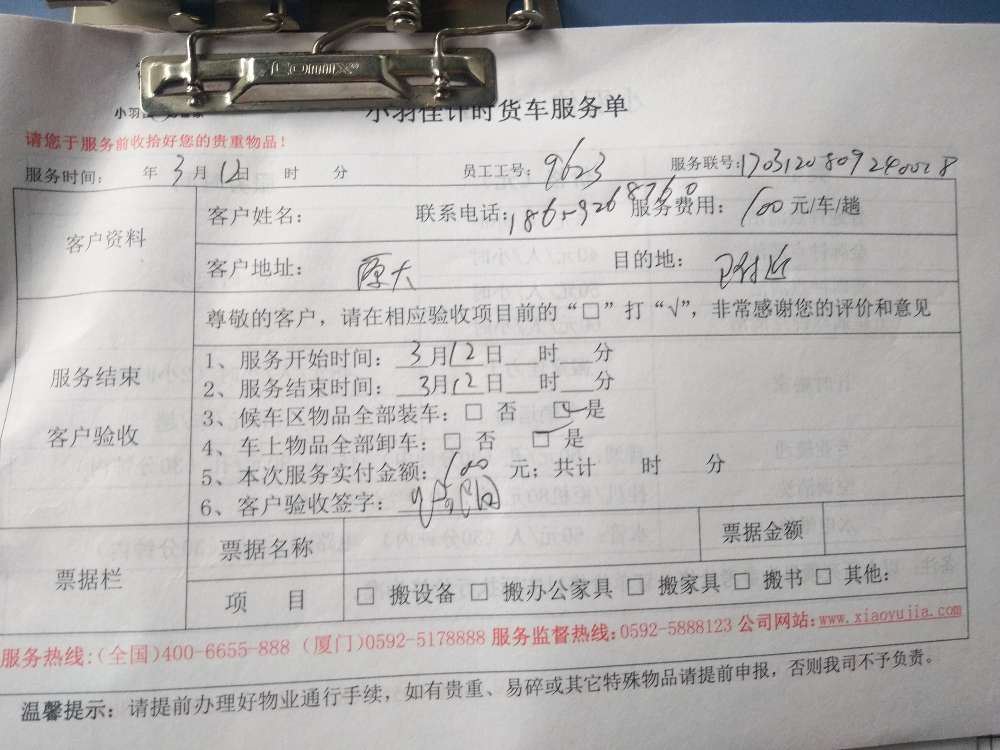 小羽佳计时货车服务单
小羽
请您于服务前收拾好您的贵重物品！
服务时间： 年 3 月 12 日 时 分 员工工号：9623 服务联号：17031208092400028
客户资料
客户姓名： 联系电话：18659268760 服务费用：100 元/车/趟
客户地址： 厦大 目的地： 附近
服务结束
客户验收
尊敬的客户，请在相应验收项目前的“□”打“√”，非常感谢您的评价和意见
1、服务开始时间：3月12日 时 分
2、服务结束时间：3月12日 时 分
3、候车区物品全部装车：□ 否 ☑ 是
4、车上物品全部卸车：□ 否 ☑ 是
5、本次服务实付金额：100 元；共计 时 分
6、客户验收签字：
票据栏
票据名称 票据金额
项 目 □ 搬设备 □ 搬办公家具 □ 搬家具 □ 搬书 □ 其他：
服务热线:(全国)400-6655-888 (厦门)0592-5178888 服务监督热线:0592-5888123 公司网站:www.xiaoyujia.com
温馨提示：请提前办理好物业通行手续，如有贵重、易碎或其它特殊物品请提前申报，否则我司不予负责。